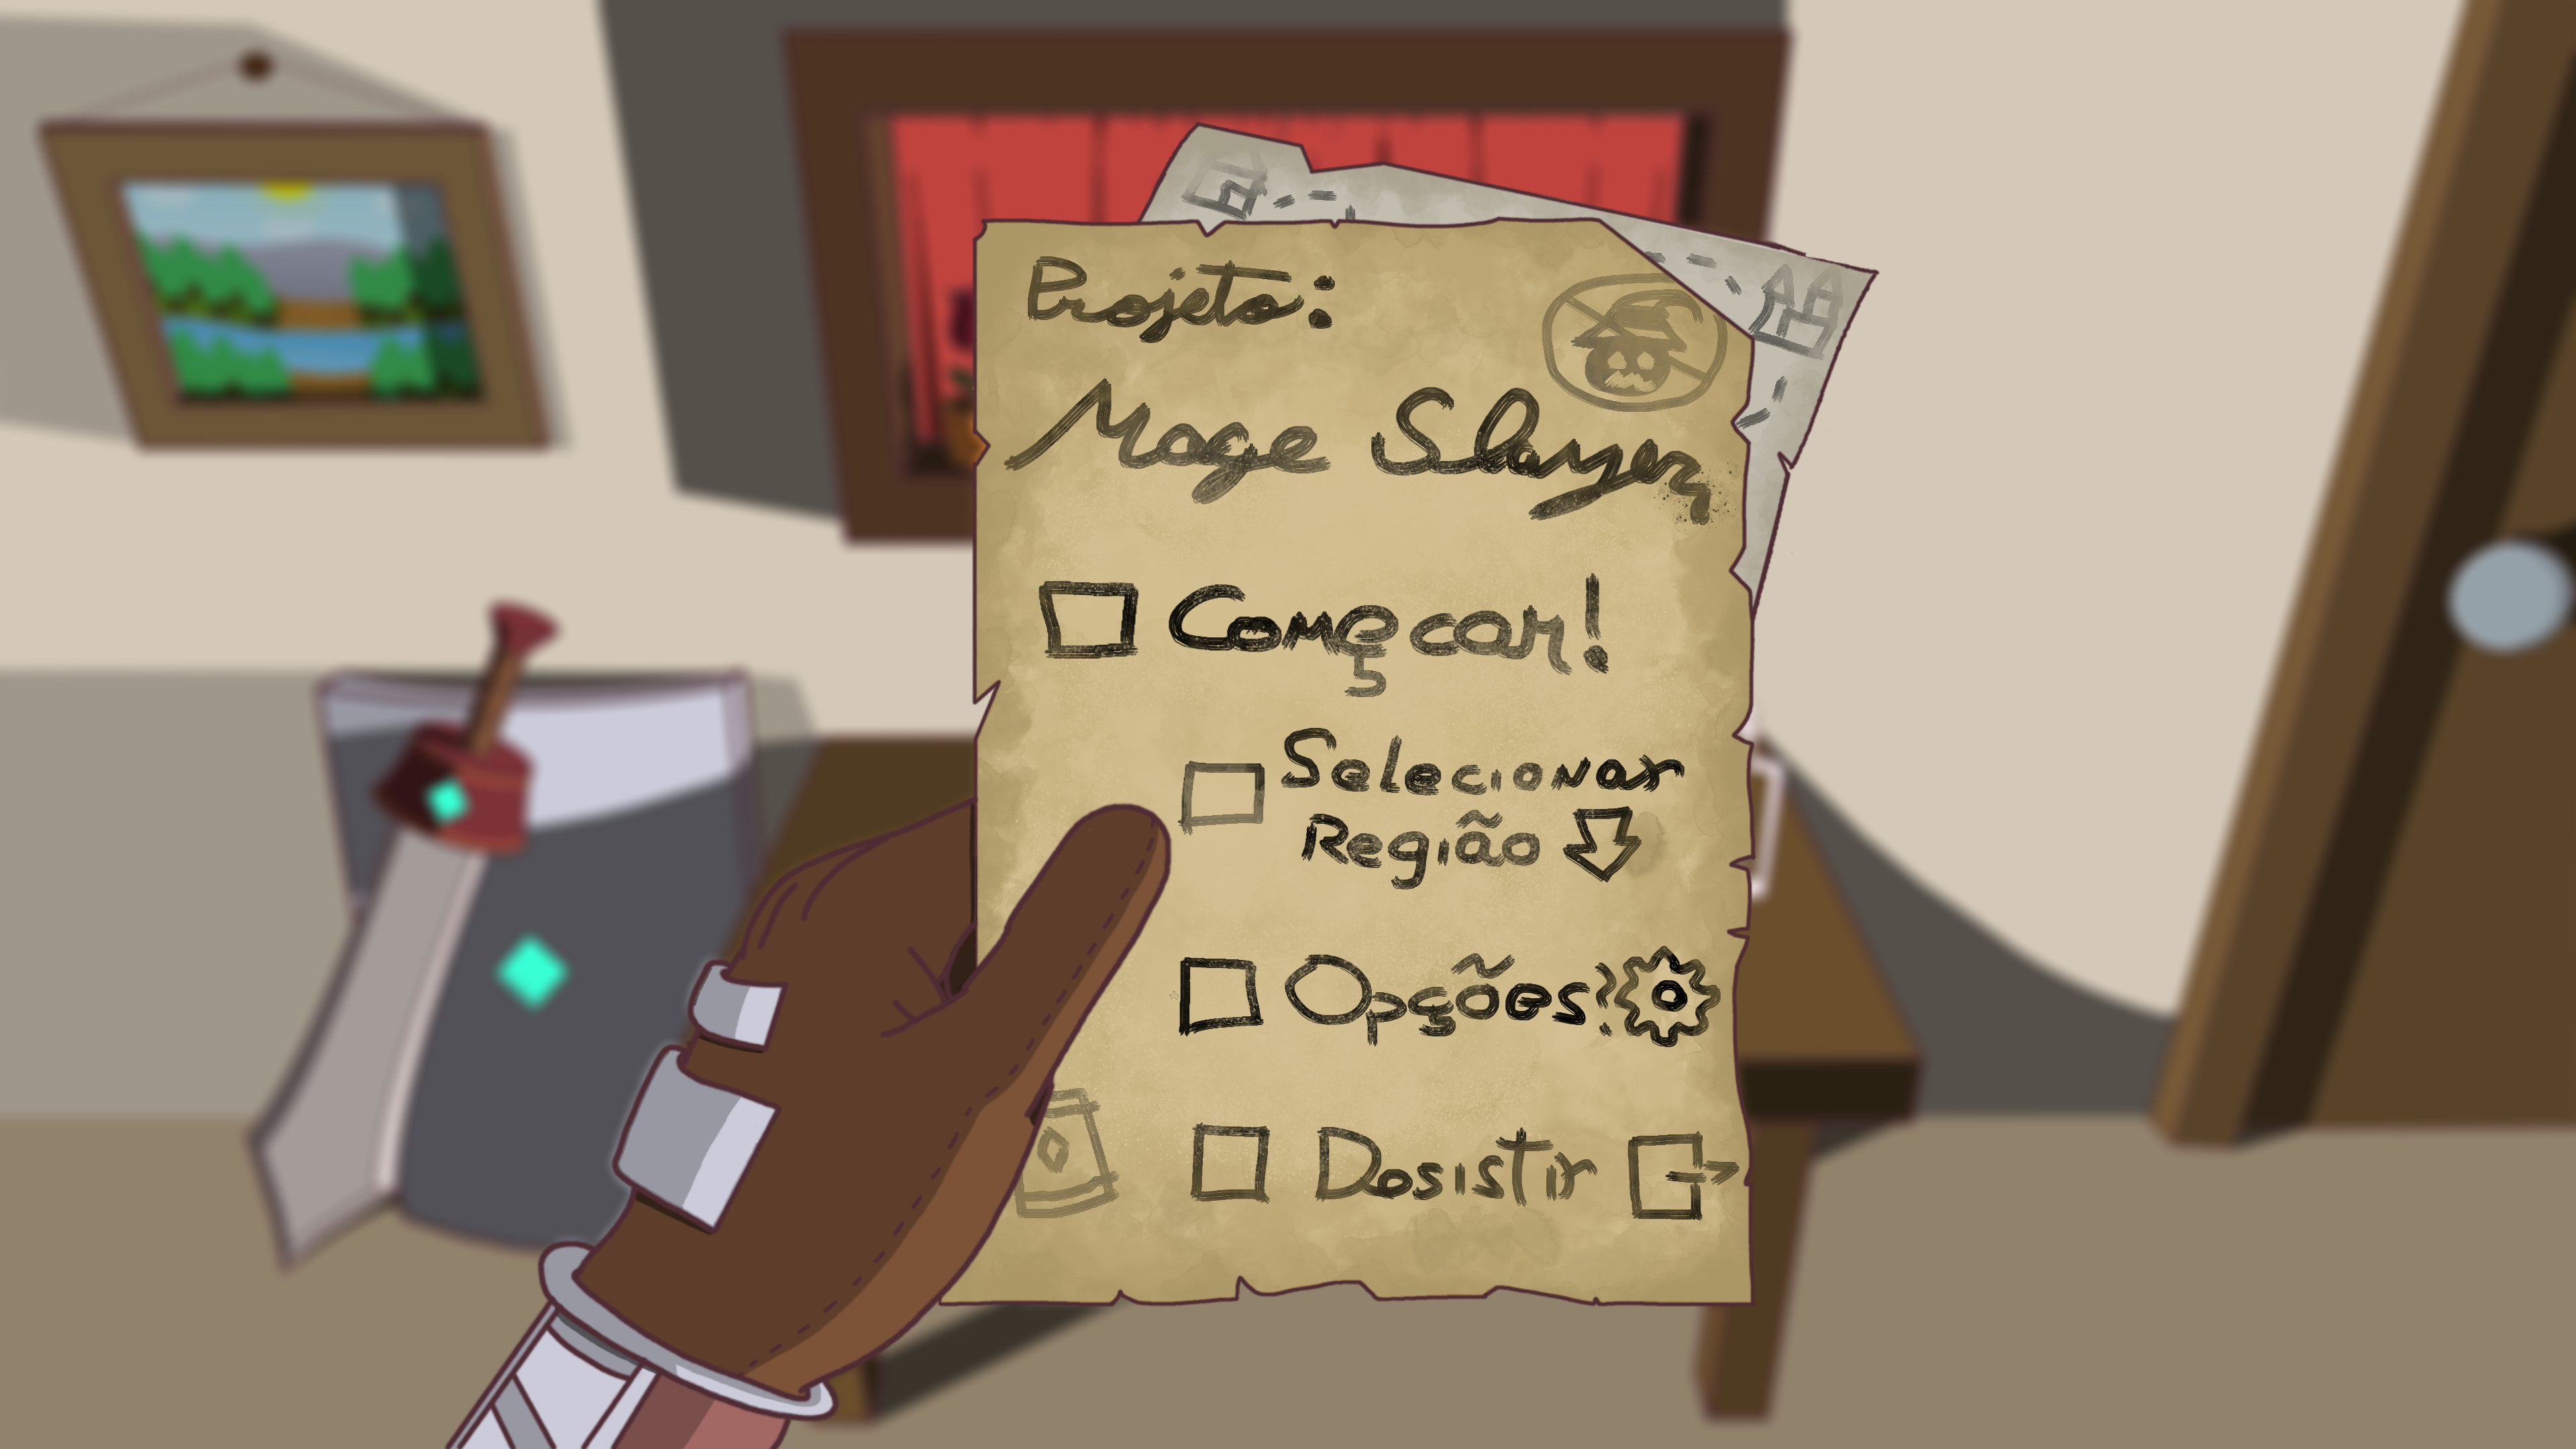 Projeto:
Mage Slayer
Começar!
Selecionar
Região
Opções
Desistir